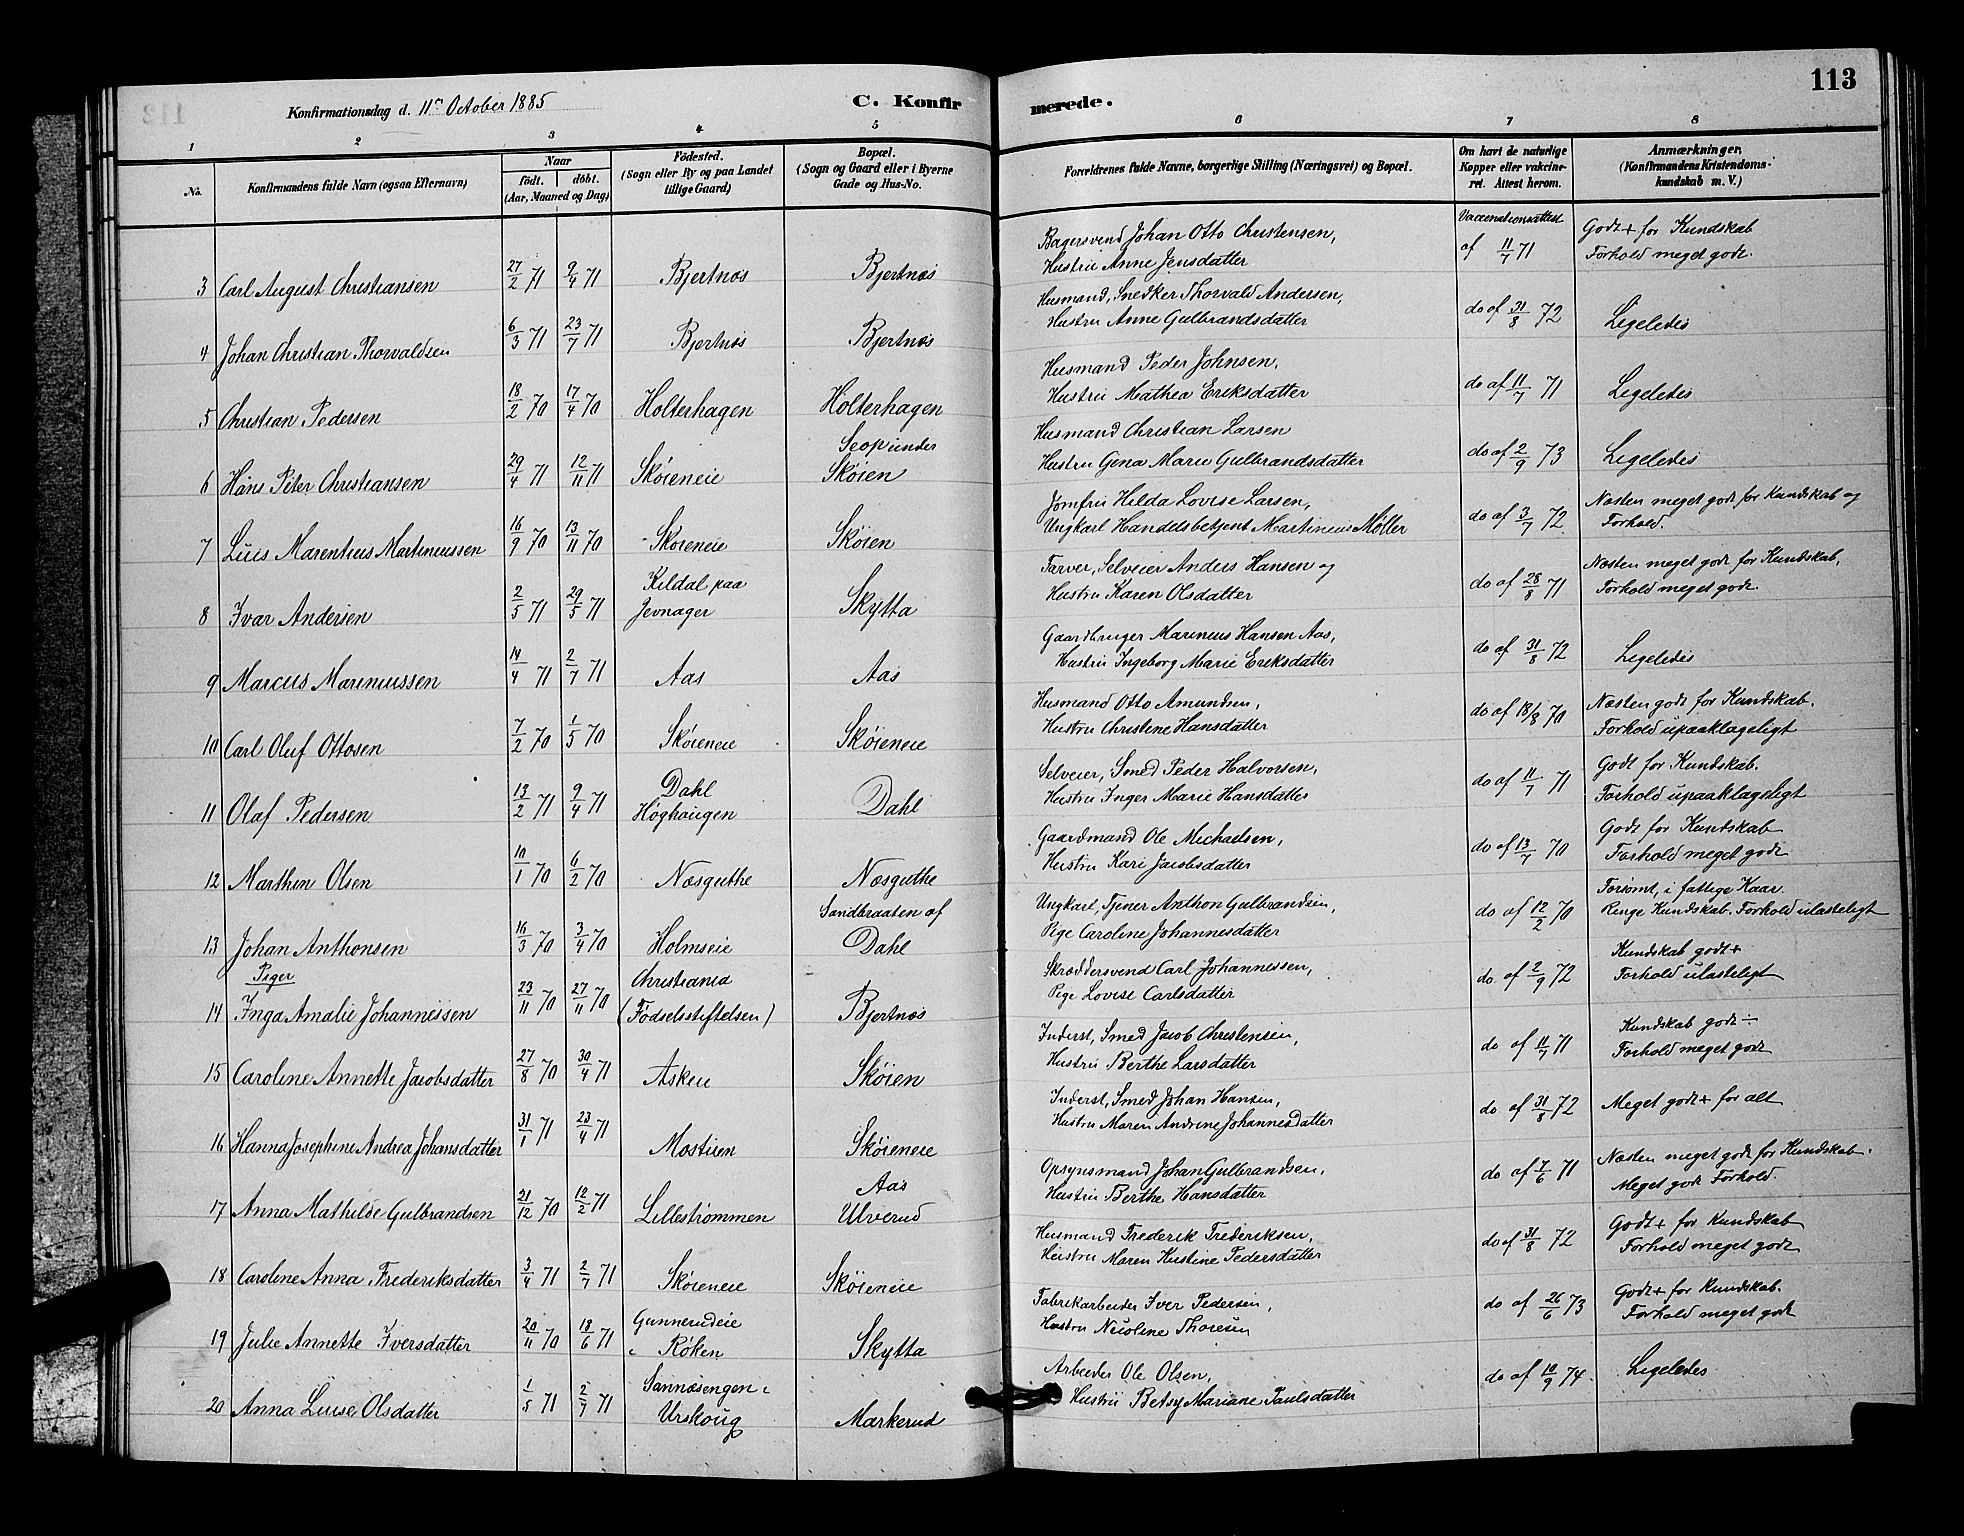 113
Konfirmationsdag d. 11te October 1885
C. Konfirmerede.
1 2 3 4 5 6 7 8
No.
Konfirmandens fulde Navn (ogsaa Efternavn)
Naar
født. døbt.
(Aar, Maaned og Dag)
Fødested.
(Sogn eller By og paa Landet
tillige Gaard)
Bopæl.
(Sogn og Gaard eller i Byerne
Gade og Hus-No.
Forældrenes fulde Navne, borgerlige Stilling (Næringsvei) og Bopæl.
Om havt de naturlige
Kopper eller vakcine-
ret. Attest herom.
Anmærkninger.
(Konfirmandens Kristendoms-
kundskab m. V.)
3 Carl August Christiansen 27/2 71 9/4 71 Bjertnæs Bjertnæs
Bagersvend Johan Otto Christensen,
Hustru Anne Jensdatter
Vaccenationsattest
af 11/7 71
Godt+ for Kundskab
Forhold meget godt.
4 Johan Christian Thorvaldsen 6/3 71 23/7 71 Bjertnæs Bjertnæs
Husmand, Snedker Thorvald Andersen,
Hustru Anne Gulbrandsdatter
do af 31/8 72 Ligeledes
5 Christian Pedersen 18/2 70 17/4 70 Holterhagen Holterhagen
Husmand Peder Johnsen,
Hustru Mathea Eriksdatter
do af 11/7 71 Ligeledes
6 Hans Peter Christiansen 29/4 71 12/11 71 Skøieneie
Scop under
Skøien
Husmand Christian Larsen
Hustru Gena Marie Gulbrandsdatter
do af 2/9 73 Ligeledes
7 Luis Marentius Martinussen 16/9 70 13/11 70 Skøieneie Skøien
Jomfru Hilda Lovise Larsen,
Ungkarl Handelsbetjent Martinius Møller
do af 3/7 72
Næsten meget godt for Kundskab og
Forhold.
8 Ivar Andersen 2/5 71 29/5 71
Kildal paa
Jevnager
Skytta
Farver, Selveier Anders Hansen og
Hustru Karen Olsdatter
do af 28/8 71
Næsten meget godt for Kundskab,
Forhold meget godt.
9 Marcus Marinussen 14/4 71 2/7 71 Aas Aas
Gaardbruger Marinus Hansen Aas,
Hustru Ingeborg Marie Eriksdatter
do af 31/8 72 Ligeledes
10 Carl Oluf Ottosen 7/2 70 1/5 70 Skøieneie Skøieneie
Husmand Otto Amundsen,
Hustru Christine Hansdatter
do af 18/8 70
Næsten godt for Kundskab.
Forhold upaaklageligt
11 Olaf Pedersen 13/2 71 9/4 71
Dahl
Høghaugen
Dahl
Selveier, Smed Peder Halvorsen,
Hustru Inger Marie Hansdatter
do af 11/7 71
Godt for Kundskab.
Forhold upaaklageligt
12 Marthin Olsen 10/1 70 6/2 70 Næsguthe Næsguthe
Gaardmand Ole Michaelsen,
Hustru Kari Jacobsdatter
do af 13/7 70
Godt for Kundskab
Forhold meget godt
13 Johan Anthonsen 16/3 70 3/4 70 Holmseie
Sandbraaten af
Dahl
Ungkarl, Tjener Anthon Gulbrandsen,
Pige Caroline Johannesdatter
do af 12/2 70
Forsømt, i fattige Kaar.
Ringe Kundskab. Forhold ulasteligt
Piger
14 Inga Amalie Johannessen 23/11 70 27/11 70
Christiania
(Fødselsstiftelsen)
Bjertnæs
Skræddersvend Carl Johannessen,
Pige Lovise Carlsdatter
do af 2/9 72
Kundskab godt+
Forhold ulasteligt
15 Caroline Annette Jacobsdatter 27/8 70 30/4 71 Askeie Skøien
Inderst, Smed Jacob Christensen,
Hustru Berthe Larsdatter
do af 11/7 71
Kundskab godt ÷
Forhold meget godt
16 Hanna Josephine Andrea Johansdatter 31/1 71 23/4 71 Mostuen Skøieneie
Inderst, Smed Johan Hansen,
Hustru Maren Andrine Johannesdatter
do af 31/8 72 Meget godt+ for alt
17 Anna Mathilde Gulbrandsen 21/12 70 12/2 71 Lillestrømmen
Aas
Ulverud
Opsynsmand Johan Gulbrandsen,
Hustru Berthe Hansdatter
do af 7/6 71
Næsten meget godt for Kundskab.
Meget godt Forhold.
18 Caroline Anna Frederiksdatter 3/4 71 2/7 71 Skøieneie Skøieneie
Husmand Frederik Frederiksen,
Hustru Maren Kristine Pedersdatter
do af 31/8 72
Godt+ for Kundskab
Forhold meget godt
19 Julie Annette Iversdatter 20/11 70 18/6 71
Gunnerudeie
i Røken
Skytta
Fabrikarbeider Iver Pedersen,
Hustru Nicoline Thoresen
do af 26/6 73
Godt+ for Kundskab.
Forhold meget godt
20 Anna Luise Olsdatter 1/5 71 2/7 71
Sannæsengen i
Urskoug
Markerud
Arbeider Ole Olsen,
Hustru Betsy Mariane Paulsdatter
do af 10/9 74 Ligeledes